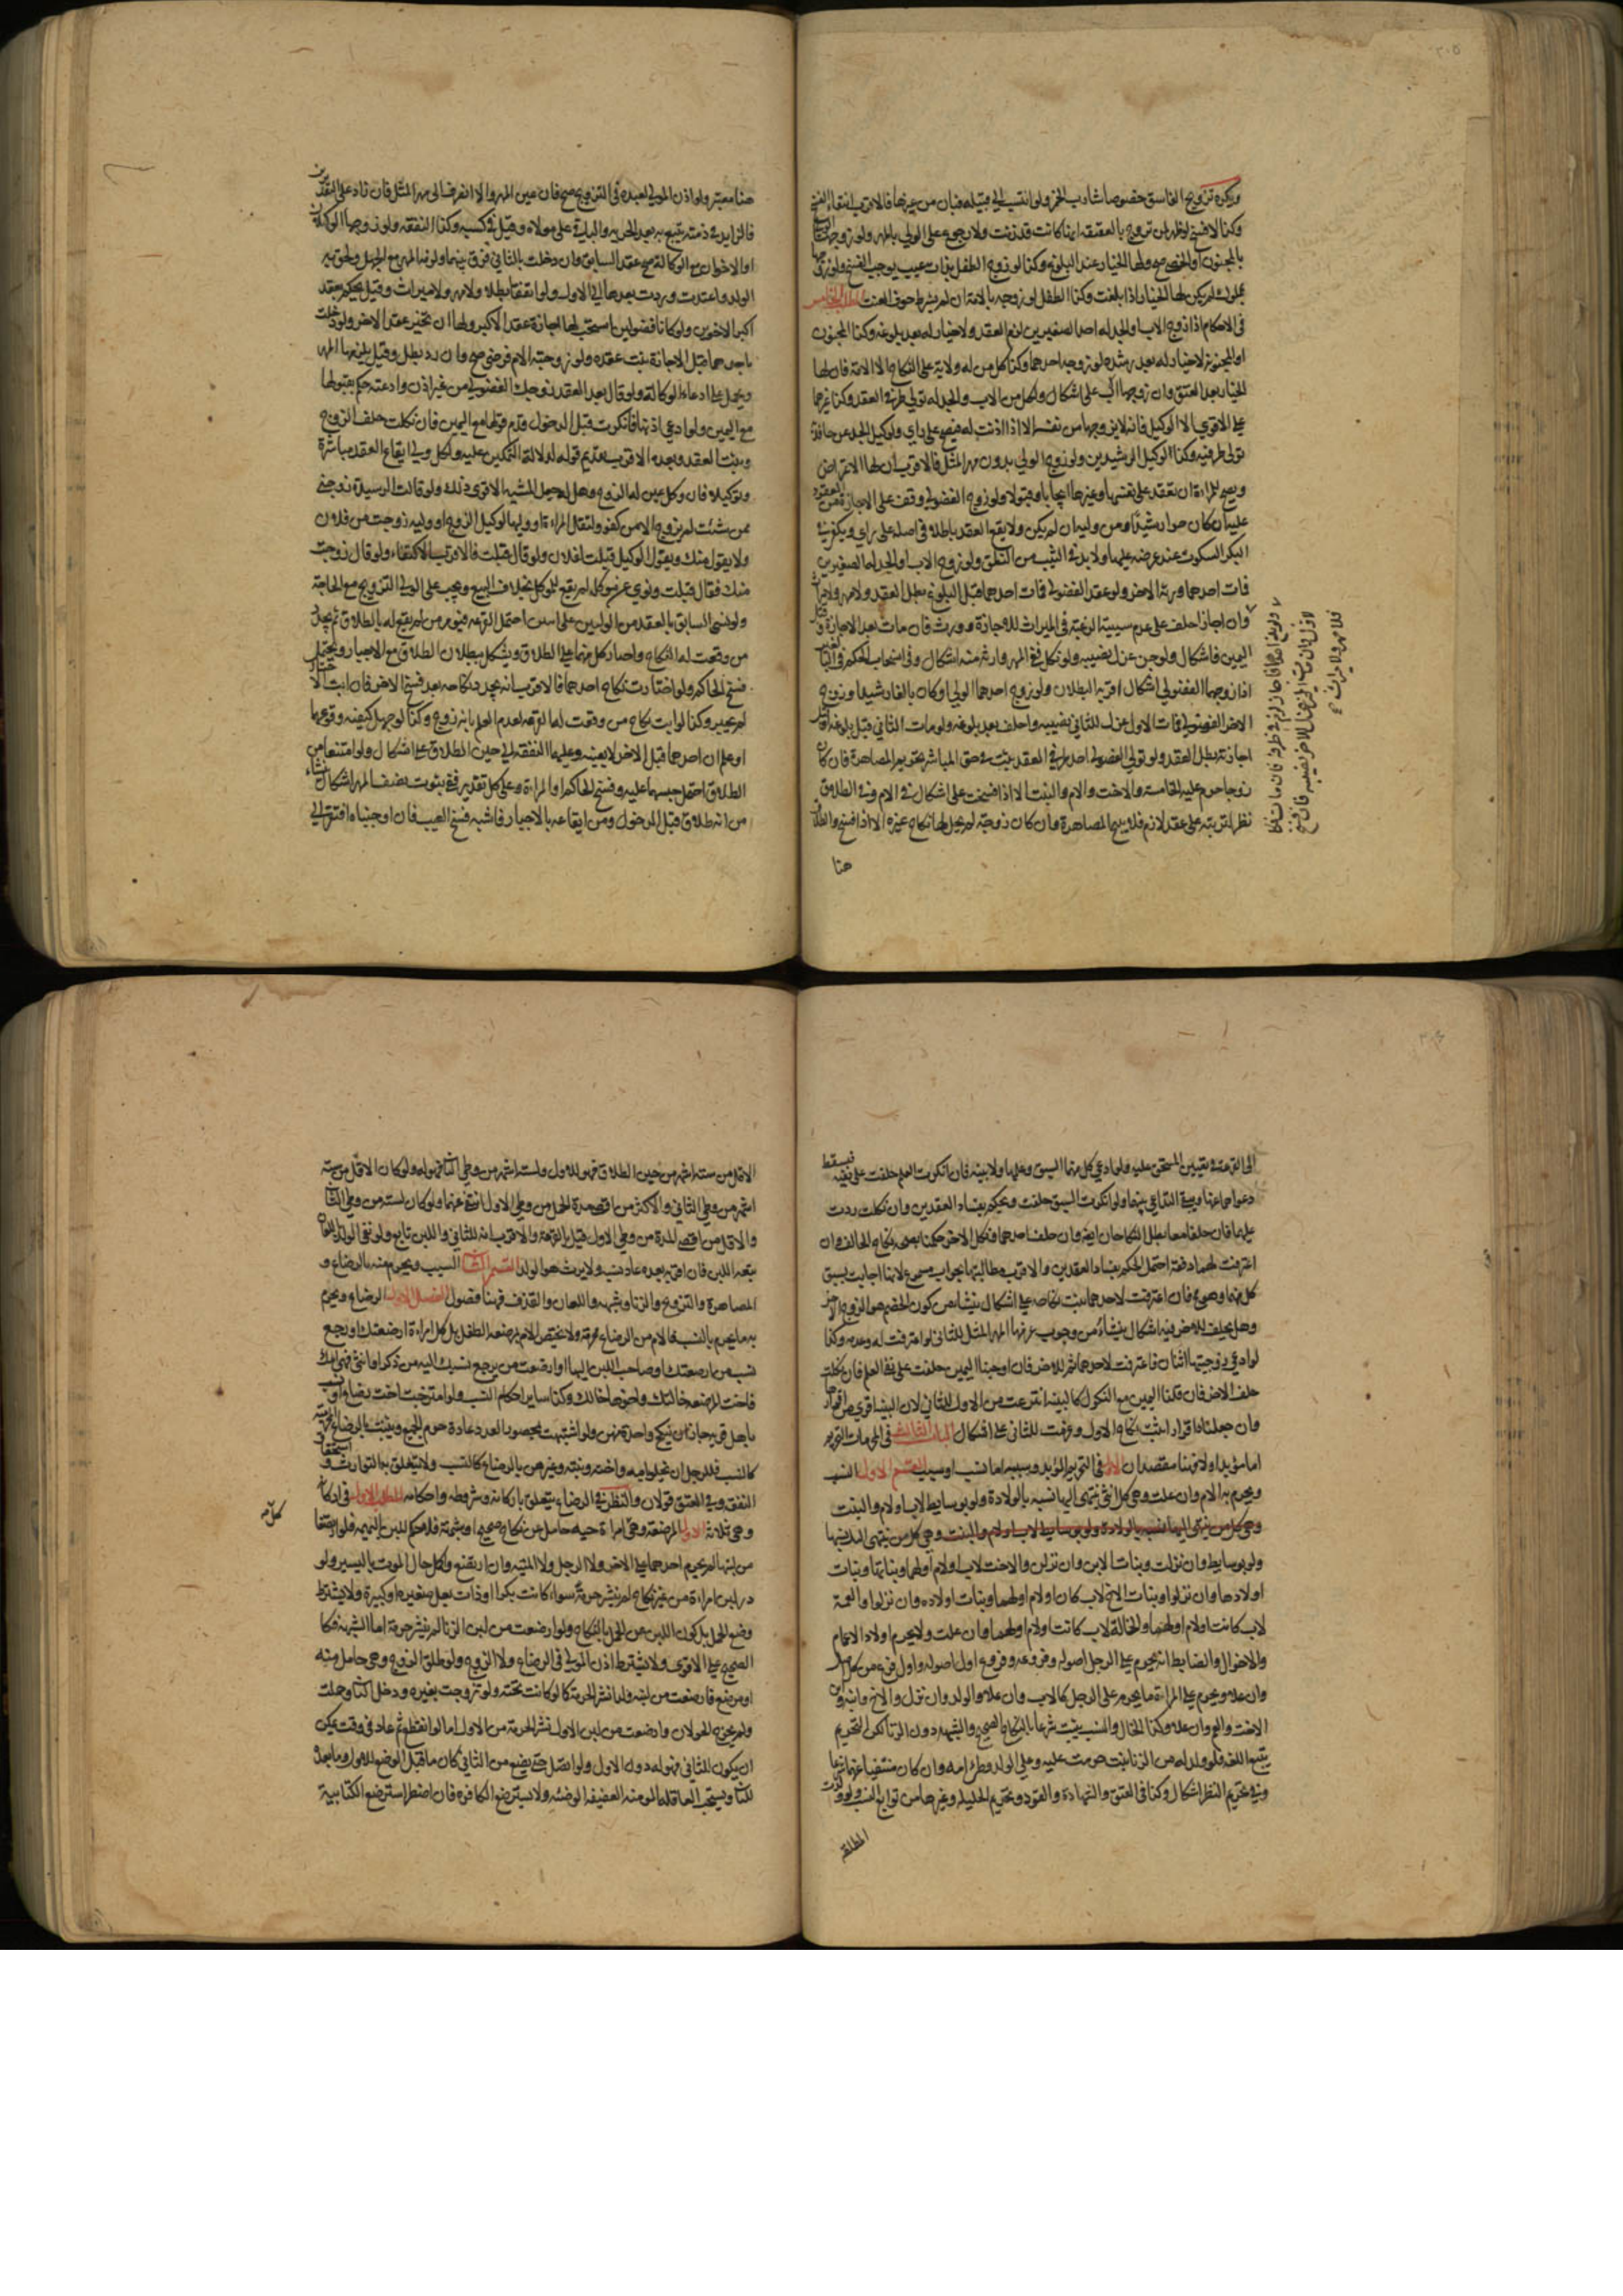 ويكره تزويج الفاسق خصوصا شارب الخمر ولو انتسب الى قبيلة فبان من غيرها فالاقرب انتفاء الفسخ
وكذا لا فسخ لو ظهر لمن تزوج بالعفيفة انها كانت قد زنت ولا رجوع على الولي بالمهر ولو زوجها الولي
بالمجنون او الخصي صح ولها الخيار عند البلوغ وكذا لو زوج الطفل بذات عيب يوجب الفسخ ولو زوجها
بمملوك لم يكن لها الخيار اذا بلغت وكذا الطفل لو زوجه بالامة ان لم يشترط خوف العنت المطلب الخامس
في الاحكام اذا زوج الاب والجد له احد الصغيرين لزم العقد ولا خيار له بعد بلوغه وكذا المجنون
او المجنونة لا خيار له بعد رشده لو زوجه احدهما وكذا كل من له ولاية على النكاح الا الامة فان لها
الخيار بعد العتق وان زوجها الاب على اشكال ولكل من الاب والجد له تولي طرفي العقد وكذا غيرهما
على الاقوى الا الوكيل فانه لا يزوجها من نفسه الا اذا اذنت له فيصح على راي ولوكيل الجد عن حافده
تولي طرفيه وكذا الوكيل الرشيدين ولو زوج الولي بدون مهر المثل فالاقرب ان لها الاعتراض
ويصح للمراة ان تعقد على نفسها وغيرها ايجابا وقبولا ولو زوج الفضولي وقف على الاجازة من المعقود
عليه ان كان حرا رشيدا ومن وليه ان لم يكن ولا يقع العقد باطلا في اصله على راي ويكفي في
البكر السكوت عند عرضه عليها ولا بد في الثيب من النطق ولو زوج الاب او الجد له الصغيرين
فمات احدهما ورثه الاخر ولو عقد الفضولي فمات احدهما قبل البلوغ بطل العقد ولا مهر ولا ميراث
وان اجاز احلف على عدم سببية الرغبة في الميراث للاجازة وورث فان مات بعد الاجازة وقبل
اليمين فاشكال ولو جن عزل نصيبه ولو نكل ففي المهر وارثه منه اشكال وفي انسحاب الحكم في البالغين
اذا زوجهما الفضولي اشكال اقربه البطلان ولو زوج احدهما الولي او كان بالغا رشيدا وزوج
الاخر الفضولي فمات الاول عزل للثاني نصيبه واحلف بعد بلوغه ولو مات الثاني قبل بلوغه او قبل
اجازته بطل العقد ولو تولى الفضولي احد طرفي العقد ثبت في حق المباشر تحريم المصاهرة فان كان
زوجا حرم عليه الخامسة والاخت والام والبنت الا اذا فسخت على اشكال في الام وفي الطلاق
نظر لترتبه على عقد لازم فلا يبيح المصاهرة وان كان زوجته لم يحل لها نكاح غيره الا اذا فسخ والطلاق
هنا
ولو بلغ احدهما فاجاز لزم في طرفه فان مات
الاول فان مات الاخر عزل للاخر نصيبه فان فسخ
فلا مهر ولا ميراث
هنا معتبر ولو اذن المولى لعبده في التزويج صح فان عين المهر والا انصرف الى مهر المثل فان زاد على التقديرين
فالزايد في ذمته يتبع به بعد الحرية والباقي على مولاه وقيل في كسبه وكذا النفقة ولو زوجها الوكيلان
او الاخوان مع الوكالة صح عقد السابق وان دخلت بالثاني فرق بينهما ولزمه المهر مع الجهل ولحق به
الولد واعتدت وردت بعدها الى الاول ولو اتفقا بطلا ولا مهر ولا ميراث وقيل يحكم بعقد
اكبر الاخوين ولو كانا فضوليين استحب لها اجازة عقد الاكبر ولها ان تختير عقد الاخر ولو دخلت
باحدهما قبل الاجازة ثبت عقده ولو زوجته الام فرضي صح وان رد بطل وقيل يلزمها المهر
ويحمل على ادعاء الوكالة ولو قال بعد العقد زوجك الفضولي من غير اذن وادعته حكم بقولها
مع اليمين ولو ادعى اذنها فانكرت قبل الدخول قدم قولها مع اليمين فان نكلت حلف الزوج
وثبت العقد وبعده الاقرب تقديم قوله لدلالة التمكين عليه ولكل ولي ايقاع العقد مباشرة
وتوكيلا فان وكل عين له الزوج وهل له جعل المشية الاقوى ذلك ولو قالت الرشيدة زوجني
ممن شئت لم يزوجها الا من كفو ولتقل المراة او وليها لوكيل الزوج او وليه زوجت من فلان
ولا يقول منك ويقول الوكيل قبلت لفلان ولو قال قبلت فالاقرب الاكتفاء ولو قال زوجت
منك فقال قبلت ونوى عن موكله لم يقع للموكل بخلاف البيع ويجب على الولي التزويج مع الحاجة
ولو نسي السابق بالعقد من الوليين على اثنين احتمل القرعة فيؤمر من لم تقع له بالطلاق ثم يجدد
من وقعت له النكاح واجبار كل منهما على الطلاق ويشكل ببطلان الطلاق مع الاجبار ويحتمل
فسخ الحاكم ولو اختارت نكاح احدهما فالاقرب انه يجدد نكاحه بعد فسخ الاخر فان ابت الاختيار
لم تجبر وكذا لو ابت نكاح من وقعت له القرعة لعدم العلم بانه زوج وكذا لو جهل كيفية وقوعهما
او علم ان احدهما قبل الاخر لا بعينه وعليهما النفقة الى حين الطلاق على اشكال ولو امتنعا من
الطلاق احتمل حبسهما عليه وفسخ الحاكم او المراة وعلى كل تقدير ففي ثبوت نصف المهر اشكال ينشاء
من انه طلاق قبل الدخول ومن ايقاعه بالاجبار فاشبه فسخ العيب فان اوجبناه افتقر الى
الى القرعة في تعيين المستحق عليه فلو ادعى كل منهما السبق وعلمها ولا بينة فان انكرت العلم حلفت على نفيه فيسقط
دعواهما عنها ويبقى التداعي بينهما ولو انكرت السبق حلفت ويحكم بفساد العقدين وان نكلت ردت
عليهما فان حلفا معا بطل النكاحان ايضا وان حلف احدهما ونكل الاخر حكمنا بصحة نكاح الحالف وان
اعترفت لهما دفعة احتمل الحكم بفساد العقدين والاقرب مطالبتها بجواب مسموع لانها اجابت بسبق
كل منهما وهو محال فان اعترفت لاحدهما ثبت نكاحه على اشكال ينشاء من كون الخصم هو الزوج الاخر
وهل يحلف للاخر فيه اشكال ينشاء من وجوب غرمها المهر المثل للثاني لو اعترفت له وعدمه وكذا
لو ادعى زوجيتها اثنان فاعترفت لاحدهما ثم للاخر فان اوجبنا اليمين حلفت على نفي العلم فان نكلت
حلف الاخر فان قلنا اليمين مع النكول كالبينة انتزعت من الاول للثاني لان البينة اقوى من اقرارها
وان جعلناه اقرارا ثبت نكاح الاول وغرمت للثاني على اشكال الباب الثالث في المحرمات التحريم
اما مؤبد او لا فهنا مقصدان الاول في التحريم المؤبد وسببه اما نسب او سبب القسم الاول النسب
ويحرم به الام وان علت وهي كل انثى ينتهي اليها نسبه بالولادة ولو بوسايط لاب او لام والبنت
وهي كل من ينتهي اليها نسبه بالولادة ولو بوسايط لاب او لام والبنت وهي كل من ينتهي اليه نسبها
ولو بوسايط وان نزلت وبنات الابن وان نزلن والاخت لاب او لام او لهما وبناتها وبنات
اولادها وان نزلوا وبنات الاخ لاب كان او لام او لهما وبنات اولاده وان نزلوا والعمة
لاب كانت او لام او لهما والخالة لاب كانت او لام او لهما وان علت ولا يحرم اولاد الاعمام
والاخوال والضابط انه يحرم على الرجل اصوله وفروعه وفروع اول اصوله واول فرع من كل اصل
وان علا ويحرم على المراة ما يحرم على الرجل كالاب وان علا والولد وان نزل والاخ وابنه وابن
الاخت والعم وان علا وكذا الخال والنسب يثبت شرعا بالنكاح الصحيح والشبهة دون الزنا لكن التحريم
يتبع اللغة فلو ولد له من الزنا بنت حرمت عليه وعلى الولد وطئ امه وان كان منتفيا عنهما شرعا
وفي تحريم النظر اشكال وكذا في العتق والشهادة والقود وتحريم الحليلة وغيرها من توابع النسب ولو ولدت
المطلقة
الاقل من ستة اشهر من حين الطلاق فهو للاول ولستة اشهر من وطي الثاني فهو له ولو كان الاقل من ستة
اشهر من وطي الثاني والاكثر من اقصى مدة الحمل من وطي الاول انتفى عنهما ولو كان لستة من وطي الثاني
والاقل من اقصى المدة من وطي الاول قيل بالقرعة والاقرب انه للثاني واللبن تابع ولو نفى الولد باللعان
تبعه اللبن فان اقر به بعده عاد نسبه ولا يرث هو الولد القسم الثاني السبب ويحرم منه بالرضاع و
المصاهرة والتزويج والزنا وشبهه واللعان والقذف فهنا فصول الفصل الاول الرضاع ويحرم
به ما يحرم بالنسب فالام من الرضاع محرمة ولا يختص الام بمرضعة الطفل بل كل امراة ارضعتك او رجع
نسب من ارضعتك او صاحب اللبن اليها او ارضعت من يرجع نسبك اليه من ذكر او انثى فهي امك
فاخت المرضعة خالتك واخوها خالك وكذا ساير احكام النسب ولو امتزجت اخت رضاع او نسب
باهل قرية جاز ان ينكح واحدة منهن ولو اشتبهت بمحصور العدد عادة حرم الجميع ويثبت بالرضاع المحرمية
كالنسب فللرجل ان يخلو بامه واخته وبنته وغيرهن بالرضاع كالنسب ولا يتعلق به التوارث واستحقاق
النفقة وفي العتق قولان والنظر في الرضاع يتعلق باركانه وشروطه واحكامه المطلب الاول في اركانه
وهي ثلاثة الاول المرضعة وهي امراة حية حامل عن نكاح صحيح او شبهة فلا حكم للبن البهيمة فلو ارتضعا
كمل من
من لبنها لم يحرم احدهما على الاخر ولا الرجل ولا الميتة وان ارتضع واكمل حال الموت باليسير ولو
در لبن امراة من غير نكاح لم ينشر حرمة سواء كانت بكرا او ذات بعل صغيرة او كبيرة ولا يشترط
وضع الحمل بل كون اللبن عن الحمل بالنكاح ولو ارضعت من لبن الزنا لم ينشر حرمة اما الشبهة فكا
الصحيح على الاقوى ولا يشترط اذن المولى في الرضاع ولا الزوج ولو طلق الزوج وهي حامل منه
او مرضع فارضعت من لبنه ولدا نشر الحرمة كما لو كانت تحته ولو تزوجت بغيره ودخل الثاني وحملت
ولم يخرج الحولان وارضعت من لبن الاول نشر الحرمة من الاول اما لو انقطع ثم عاد في وقت يمكن
ان يكون للثاني فهو له دون الاول ولو اتصل حتى يضع من الثاني كان ما قبل الوضع للاول وما بعده
للثاني ويستحب العاقلة المؤمنة العفيفة الوضيئة ولا يسترضع الكافرة فان اضطر استرضع الكتابية